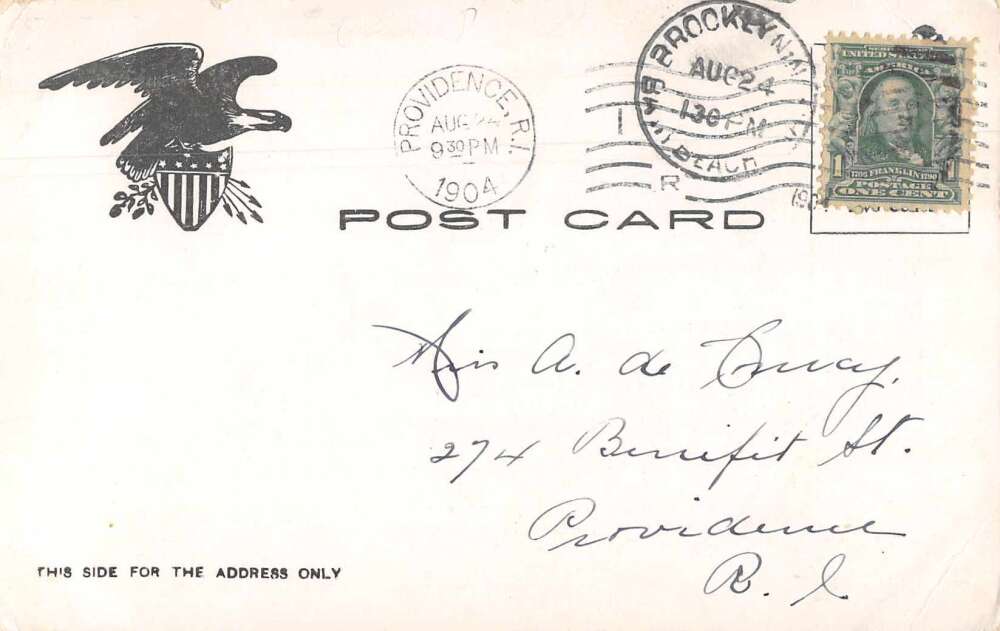 PROVIDENCE, R.I.
AUG 24
9 30 PM
1904
I
R
BROOKLYN, N.Y.
AUG 24
1 30 PM
BEACH
SERIES 1902
UNITED STATES OF
AMERICA
1706 FRANKLIN 1790
1
POSTAGE
ONE CENT
POST CARD
Miss A. de
274 Benefit St.
Providence
R. I.
THIS SIDE FOR THE ADDRESS ONLY